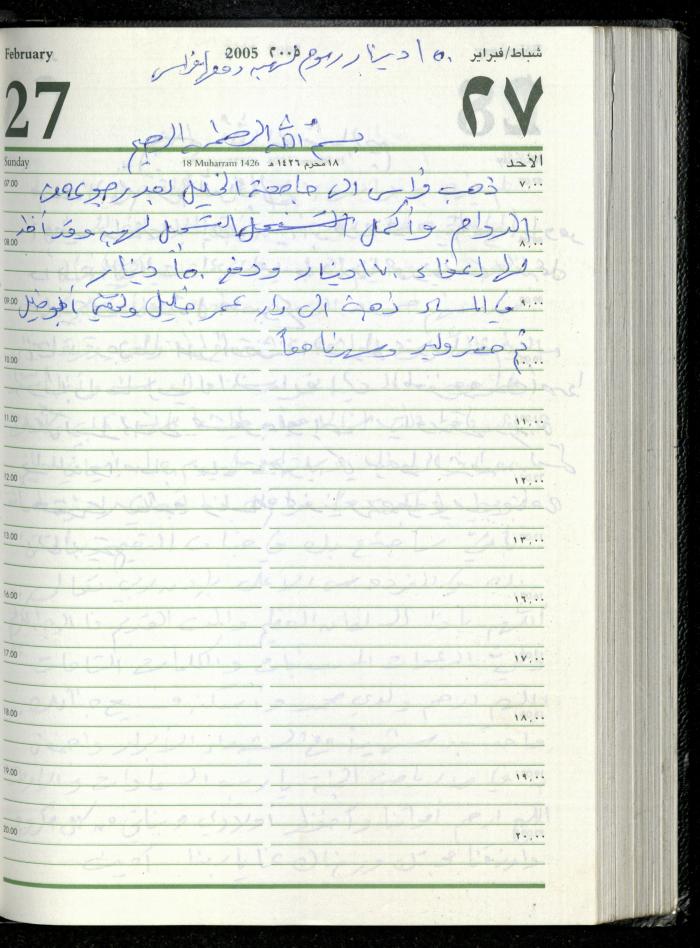 February 2005 ٢٠٠٥ شباط/فبراير
١٥٠ دينار رسوم لهبه دفعها فراس
27 ٢٧
بسم الله الرحمن الرحيم
Sunday 18 Muharram 1426 ١٨ محرم ١٤٢٦ هـ الأحد
07.00 ذهب فراس الى جامعة الخليل بعد رجوعه من ٧,٠٠
الدوام وأكمل التسجيل لهبه وقد أخذ
08.00 ٨,٠٠
لها إعفاء ١٧٠ دينار ودفع ١٥٠ دينار
09.00 في المساء ذهبت الى دار عمر خليل ٩,٠٠
ثم حضر وليد وسهرنا معاً
10.00 ١٠,٠٠
11.00 ١١,٠٠
12.00 ١٢,٠٠
13.00 ١٣,٠٠
16.00 ١٦,٠٠
17.00 ١٧,٠٠
18.00 ١٨,٠٠
19.00 ١٩,٠٠
20.00 ٢٠,٠٠